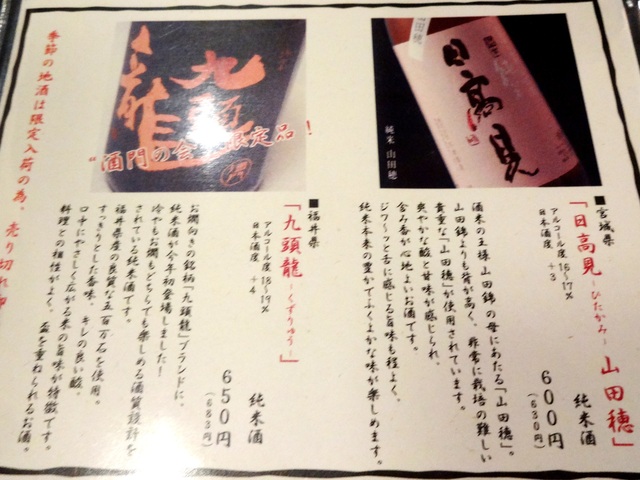 日高見
純米 山田穂
■宮城県
「日高見 －ひたかみ－ 山田穂」
アルコール度 16～17％
日本酒度 ＋3
純米酒
600円
（630円）
酒米の王様 山田錦の母にあたる「山田穂」。
山田錦よりも背が高く、非常に栽培の難しい
貴重な「山田穂」が使用されています。
爽やかな酸と甘味が感じられ、
含み香が心地よいお酒です。
ジワ～ッと舌に感じる旨味も程よく、
純米本来の豊かでふくよかな味が楽しめます。
九頭龍
"酒門の会 限定品！
■福井県
「九頭龍 －くずりゅう－」
アルコール度 18～19％
日本酒度 ＋4
純米酒
650円
（683円）
お燗向きの銘柄「九頭龍」ブランドに、
純米酒が今年初登場しました！
冷やもお燗もどちらでも楽しめる酒質設計を
されている純米酒です。
福井県産の良質な五百万石を使用。
すっきりとした香味、キレの良い酸、
口中にやさしく広がる米の旨味が特徴です。
料理との相性がよく、盃を重ねられるお酒。
季節の地酒は限定入荷の為、売り切れ